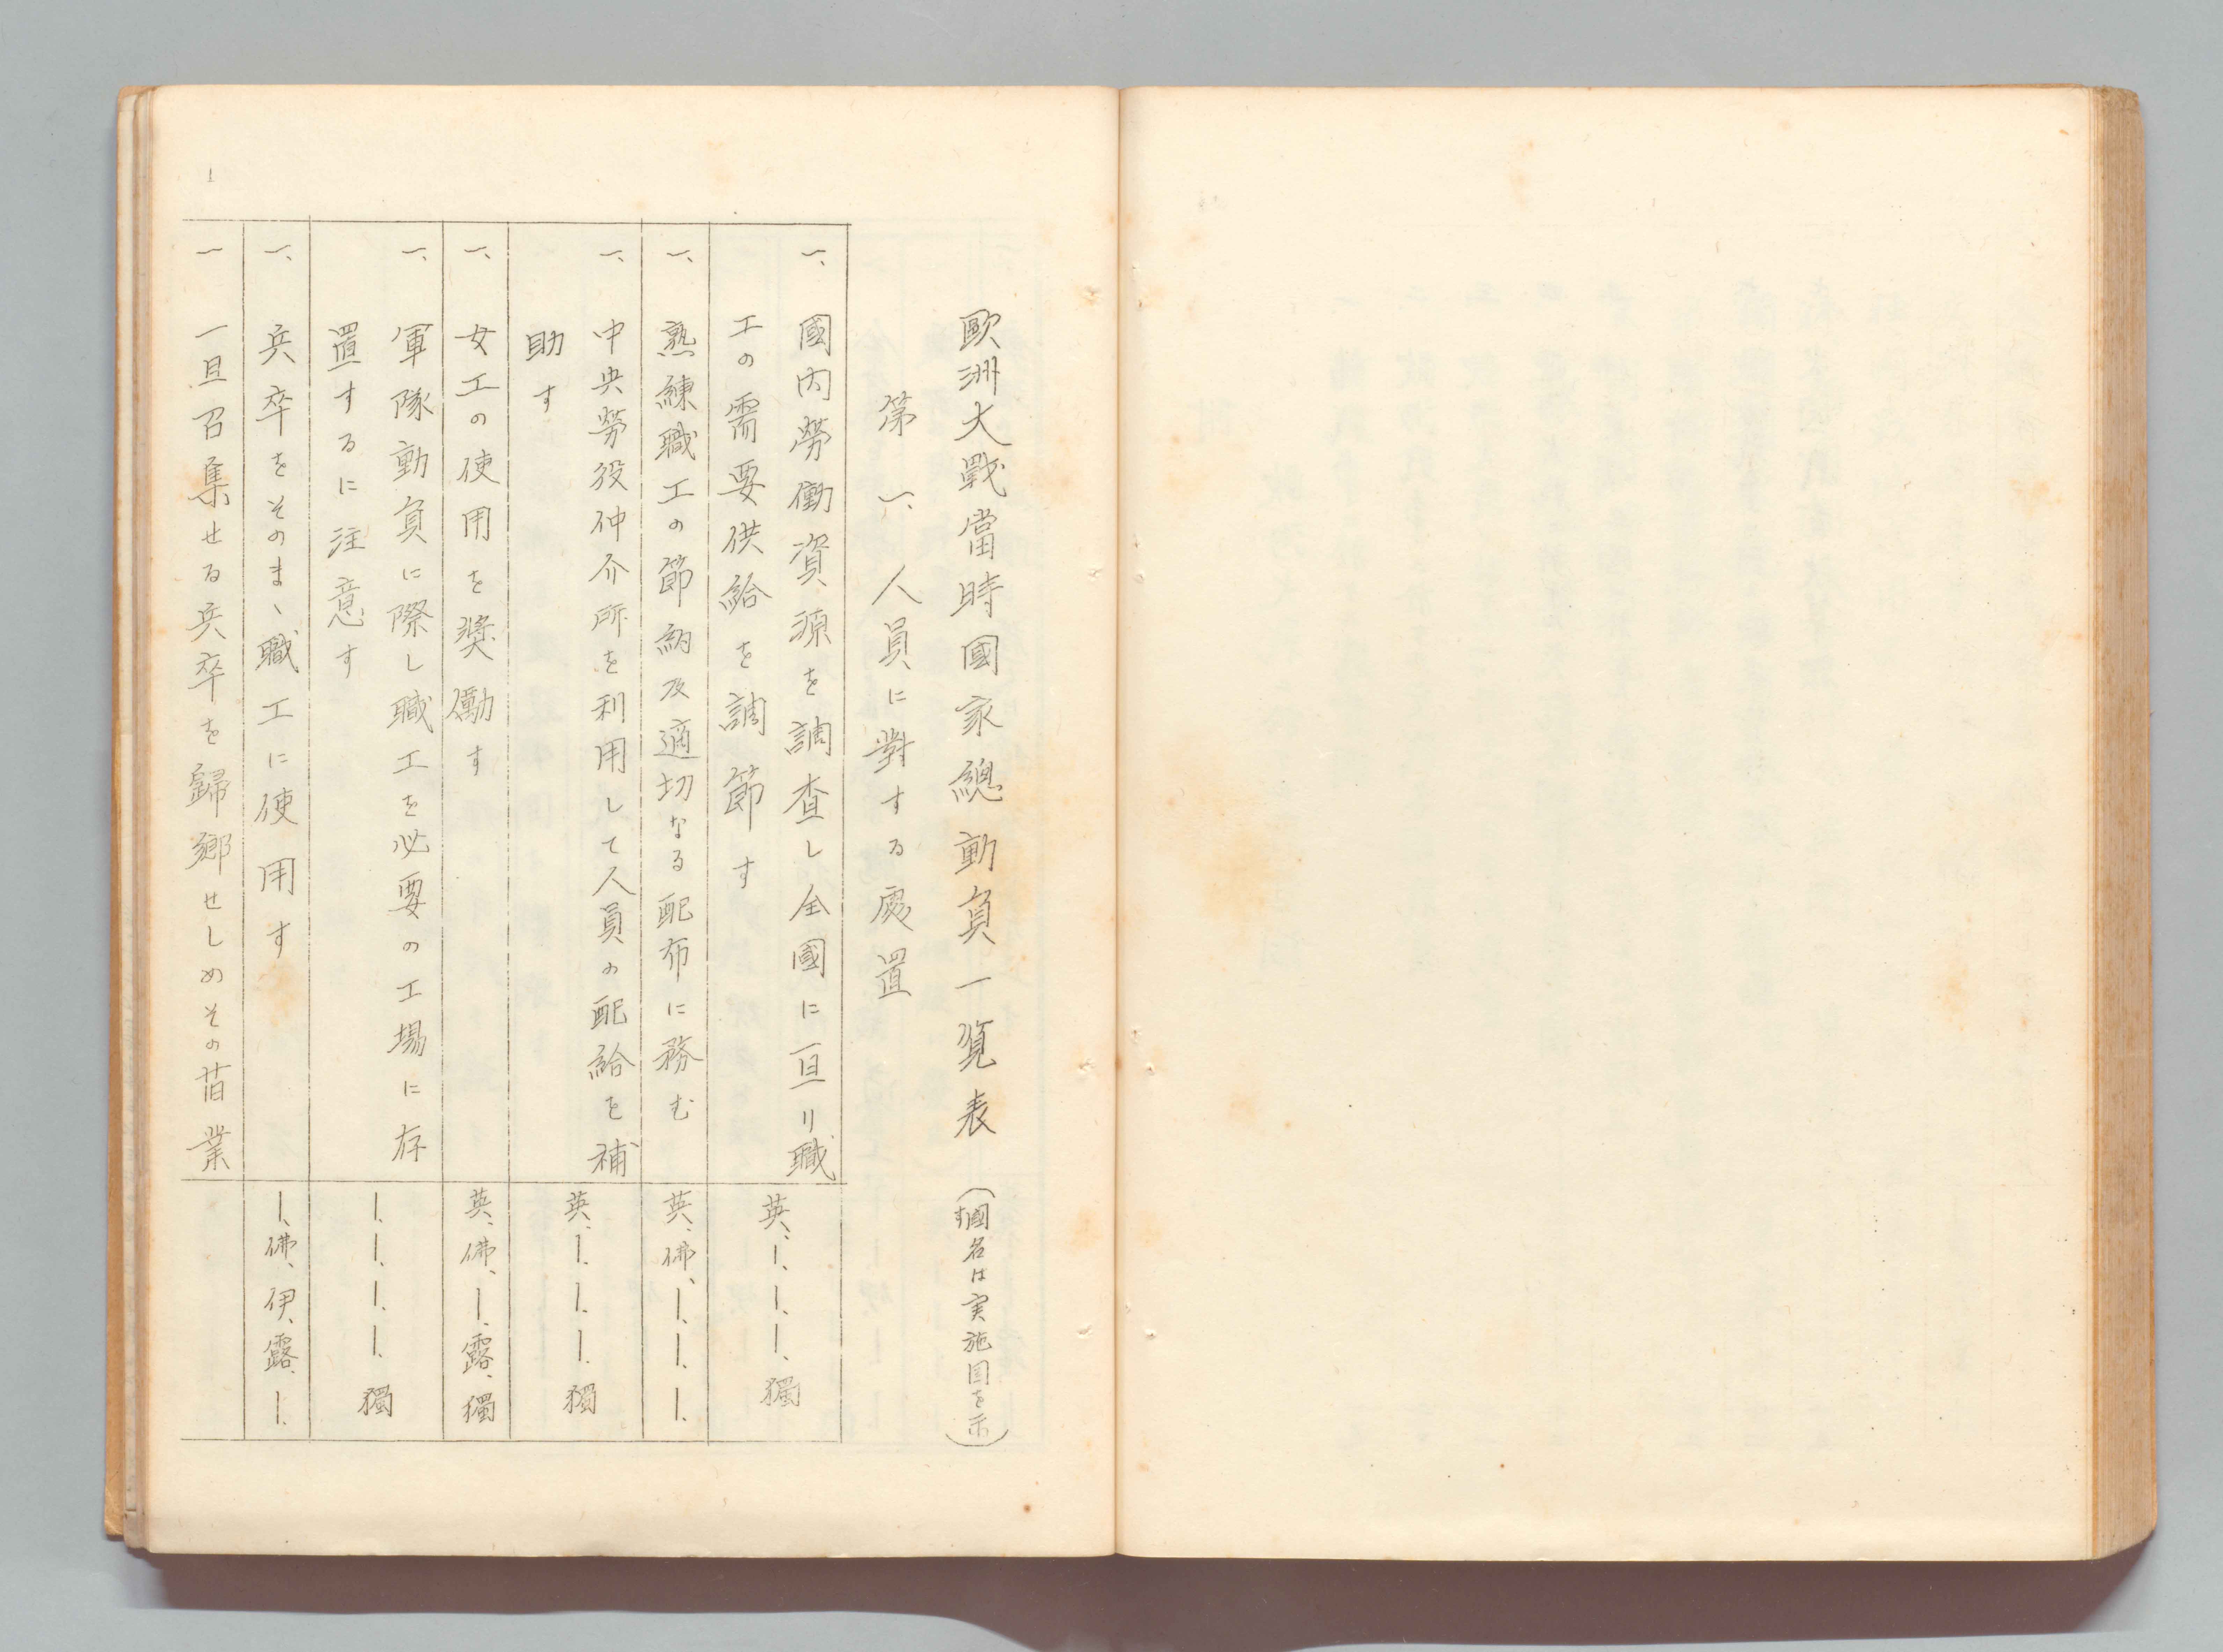 歐洲大戰當時國家總動負一覧表(國名は実施国を示す)
第一、人員に對する處置
一、國内勞働資源を調査し全國に亘り職
工の需要供給を調節す
英、ー、ー、ー、獨
一、熟練職工の節約及適切なる配布に務む
英、佛、ー、ー、ー、
一、中央勞役仲介所を利用して人員の配給を補
助す
英、ー、ー、ー、獨
一、女工の使用を奨働す
英、佛、ー、露、獨
一、軍隊動負に際し職工を必要の工場に存
置するに注意す
ー、ー、ー、ー、獨
一、兵卒をそのまゝ職工に使用す
ー、佛、伊、露、ー、
一 一旦召集せる兵卒を歸郷せしめその昔業
1